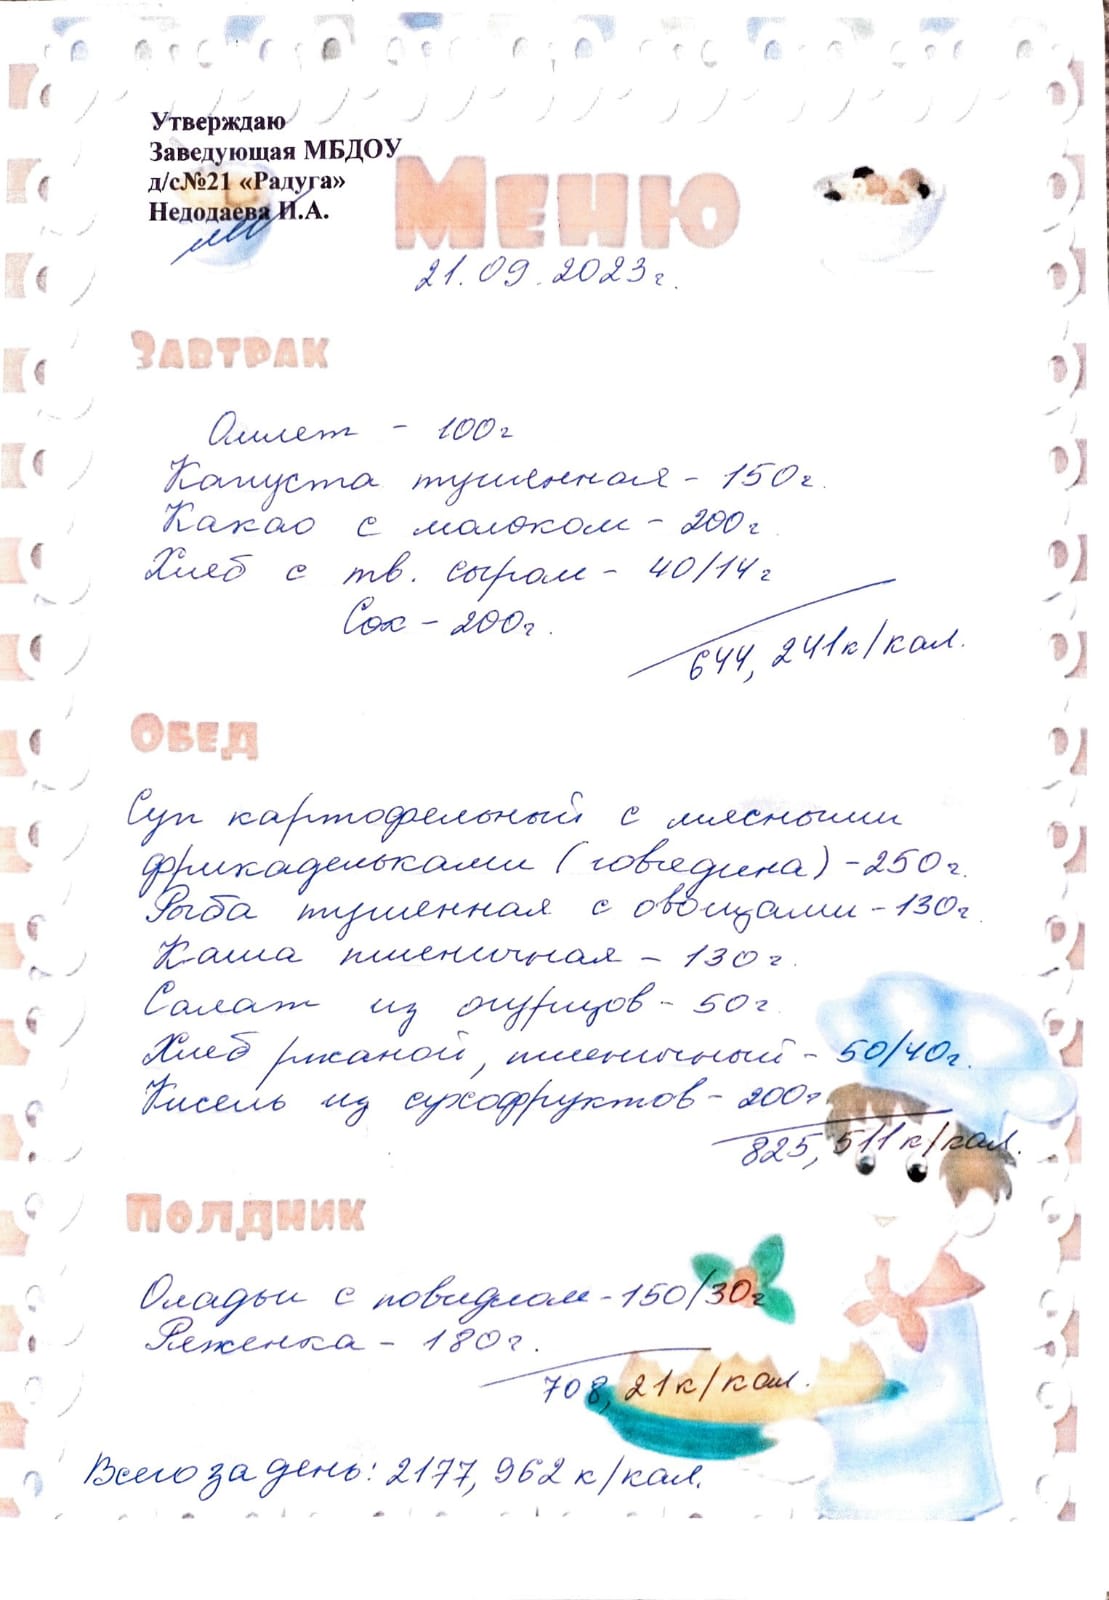 Утверждаю
Заведующая МБДОУ
д/с№21 «Радуга»
Недодаева И.А.
Меню
21.09.2023г.
Завтрак
Омлет - 100г
Капуста тушенная - 150г.
Какао с молоком - 200г.
Хлеб с тв. сыром - 40/14г
Сок - 200г.
644, 241к/кал.
Обед
Суп картофельный с мясными
фрикадельками (говядина) - 250г.
Рыба тушенная с овощами - 130г.
Каша пшеничная - 130г.
Салат из огурцов - 50г.
Хлеб ржаной, пшеничный - 50/40г.
Кисель из сухофруктов - 200г
825, 511к/кал.
Полдник
Оладьи с повидлом - 150/30г
Ряженка - 180г.
708, 21к/кал.
Всего за день: 2177, 962 к/кал.